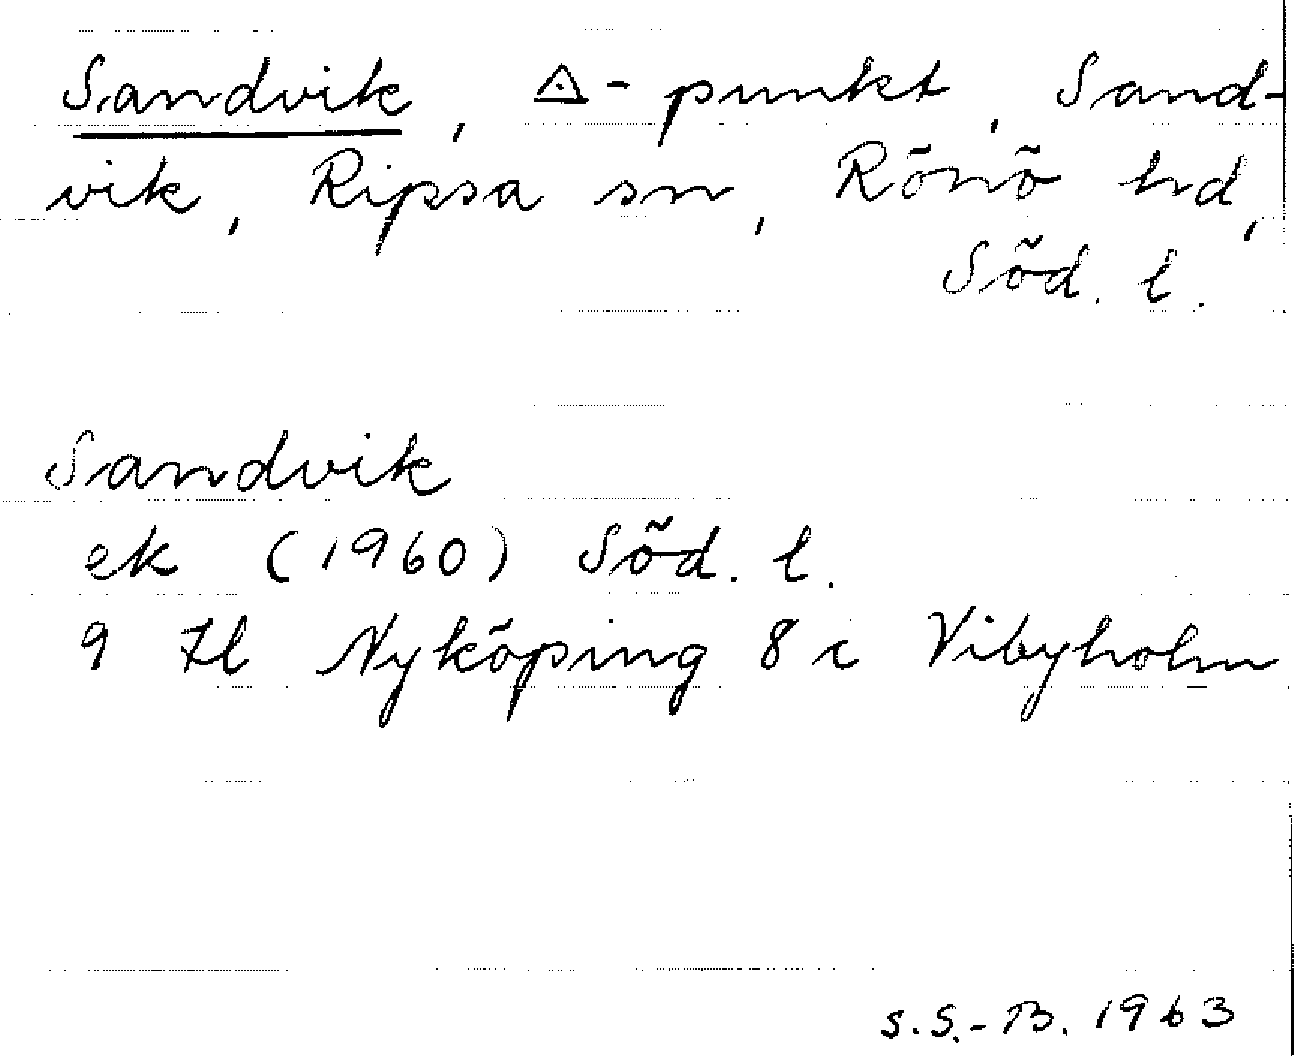 Sandvik, △-punkt, Sand-
vik, Ripsa sn, Rönö hd,
Söd. l.
Sandvik
ek (1960) Söd. l.
9 Hl Nyköping 8 c Vibyholm
S.S.-B. 1963